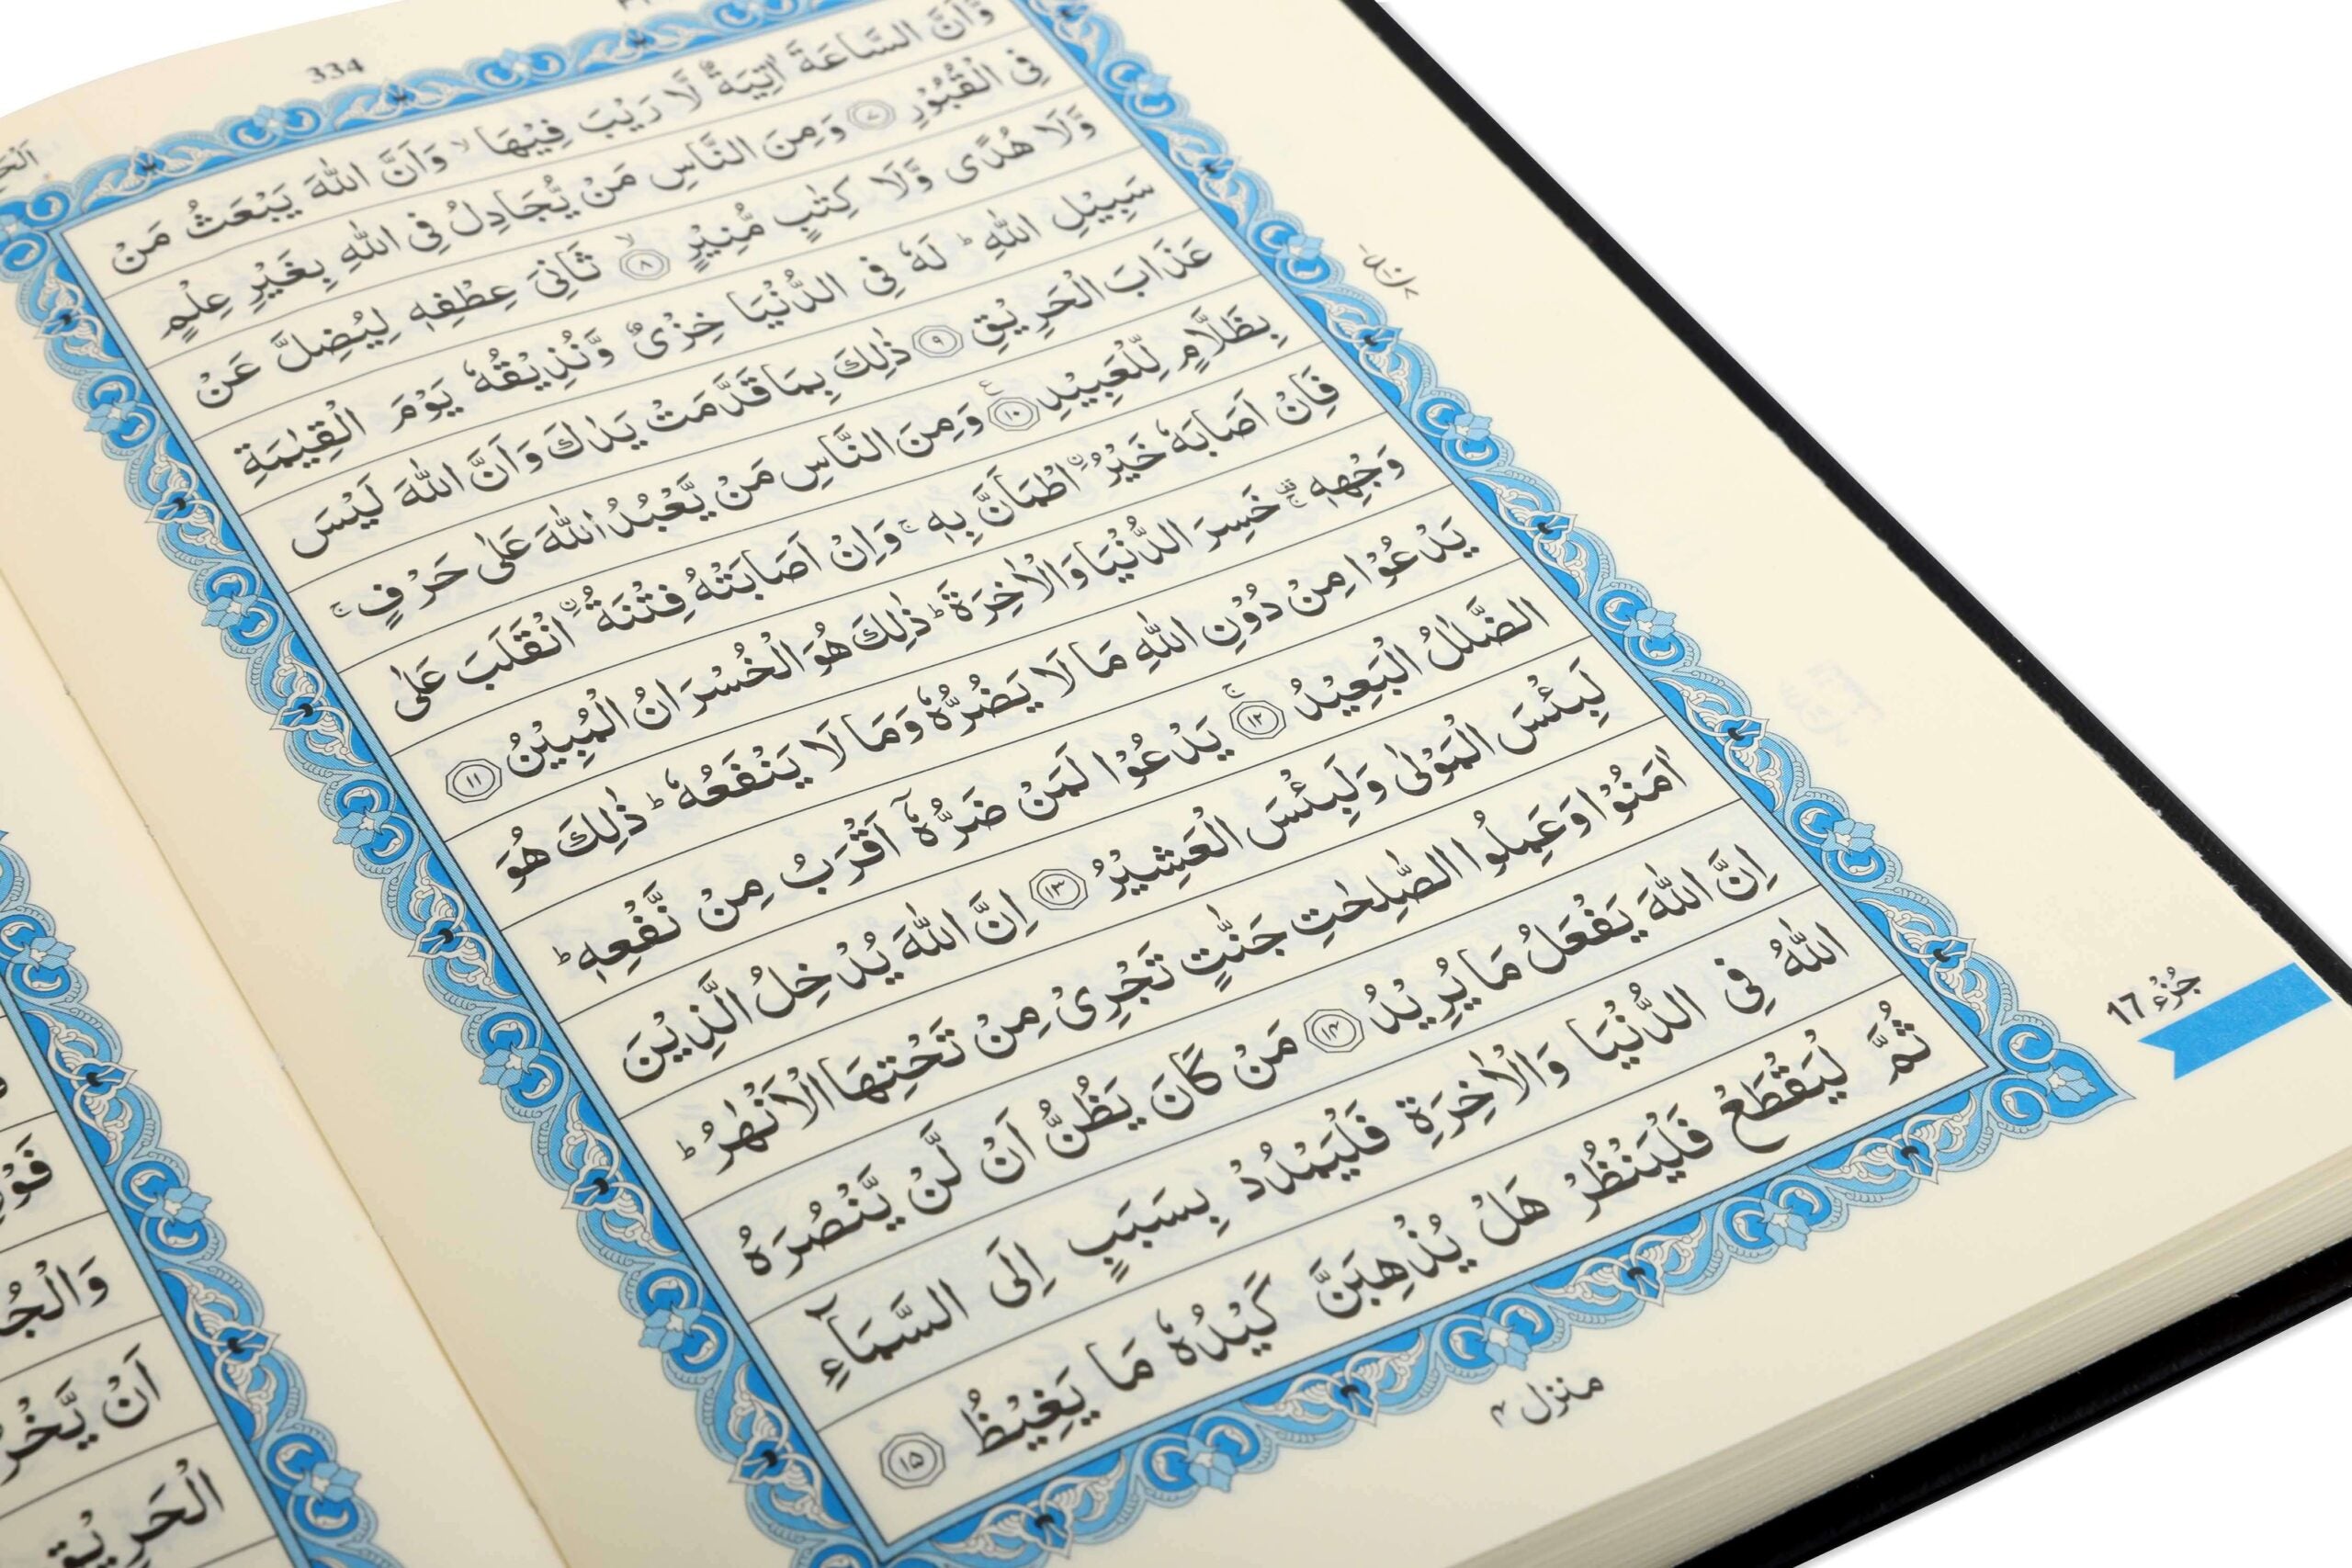 334
وَّاَنَّ السَّاعَةَ اٰتِيَةٌ لَّا رَيْبَ فِيْهَا ۙ وَاَنَّ اللّٰهَ يَبْعَثُ مَنْ
فِى الْقُبُوْرِ ۷ وَمِنَ النَّاسِ مَنْ يُّجَادِلُ فِى اللّٰهِ بِغَيْرِ عِلْمٍ
وَّلَا هُدًى وَّلَا كِتٰبٍ مُّنِيْرٍ ۙ ۸ ثَانِىَ عِطْفِهٖ لِيُضِلَّ عَنْ
سَبِيْلِ اللّٰهِ ؕ لَهٗ فِى الدُّنْيَا خِزْىٌ وَّنُذِيْقُهٗ يَوْمَ الْقِيٰمَةِ
عَذَابَ الْحَرِيْقِ ۹ ذٰلِكَ بِمَا قَدَّمَتْ يَدٰكَ وَاَنَّ اللّٰهَ لَيْسَ
بِظَلَّامٍ لِّلْعَبِيْدِ ۱۰ وَمِنَ النَّاسِ مَنْ يَّعْبُدُ اللّٰهَ عَلٰى حَرْفٍ ۚ
فَاِنْ اَصَابَهٗ خَيْرُ ۨاطْمَاَنَّ بِهٖ ۚ وَاِنْ اَصَابَتْهُ فِتْنَةُ ۨانْقَلَبَ عَلٰى
وَجْهِهٖ ۚ خَسِرَ الدُّنْيَا وَالْاٰخِرَةَ ؕ ذٰلِكَ هُوَ الْخُسْرَانُ الْمُبِيْنُ ۱۱
يَدْعُوْا مِنْ دُوْنِ اللّٰهِ مَا لَا يَضُرُّهٗ وَمَا لَا يَنْفَعُهٗ ؕ ذٰلِكَ هُوَ
الضَّلٰلُ الْبَعِيْدُ ۚ ۱۲ يَدْعُوْا لَمَنْ ضَرُّهٗۤ اَقْرَبُ مِنْ نَّفْعِهٖ ؕ
لَبِئْسَ الْمَوْلٰى وَلَبِئْسَ الْعَشِيْرُ ۱۳ اِنَّ اللّٰهَ يُدْخِلُ الَّذِيْنَ
اٰمَنُوْا وَعَمِلُوا الصّٰلِحٰتِ جَنّٰتٍ تَجْرِىْ مِنْ تَحْتِهَا الْاَنْهٰرُ ؕ
اِنَّ اللّٰهَ يَفْعَلُ مَا يُرِيْدُ ۱۴ مَنْ كَانَ يَظُنُّ اَنْ لَّنْ يَّنْصُرَهُ
اللّٰهُ فِى الدُّنْيَا وَالْاٰخِرَةِ فَلْيَمْدُدْ بِسَبَبٍ اِلَى السَّمَآءِ
ثُمَّ لْيَقْطَعْ فَلْيَنْظُرْ هَلْ يُذْهِبَنَّ كَيْدُهٗ مَا يَغِيْظُ ۱۵
جُزْء 17
منزل ۴
وَالْجُ
اَنْ يَّخْرُ
الْحَرِيْقِ